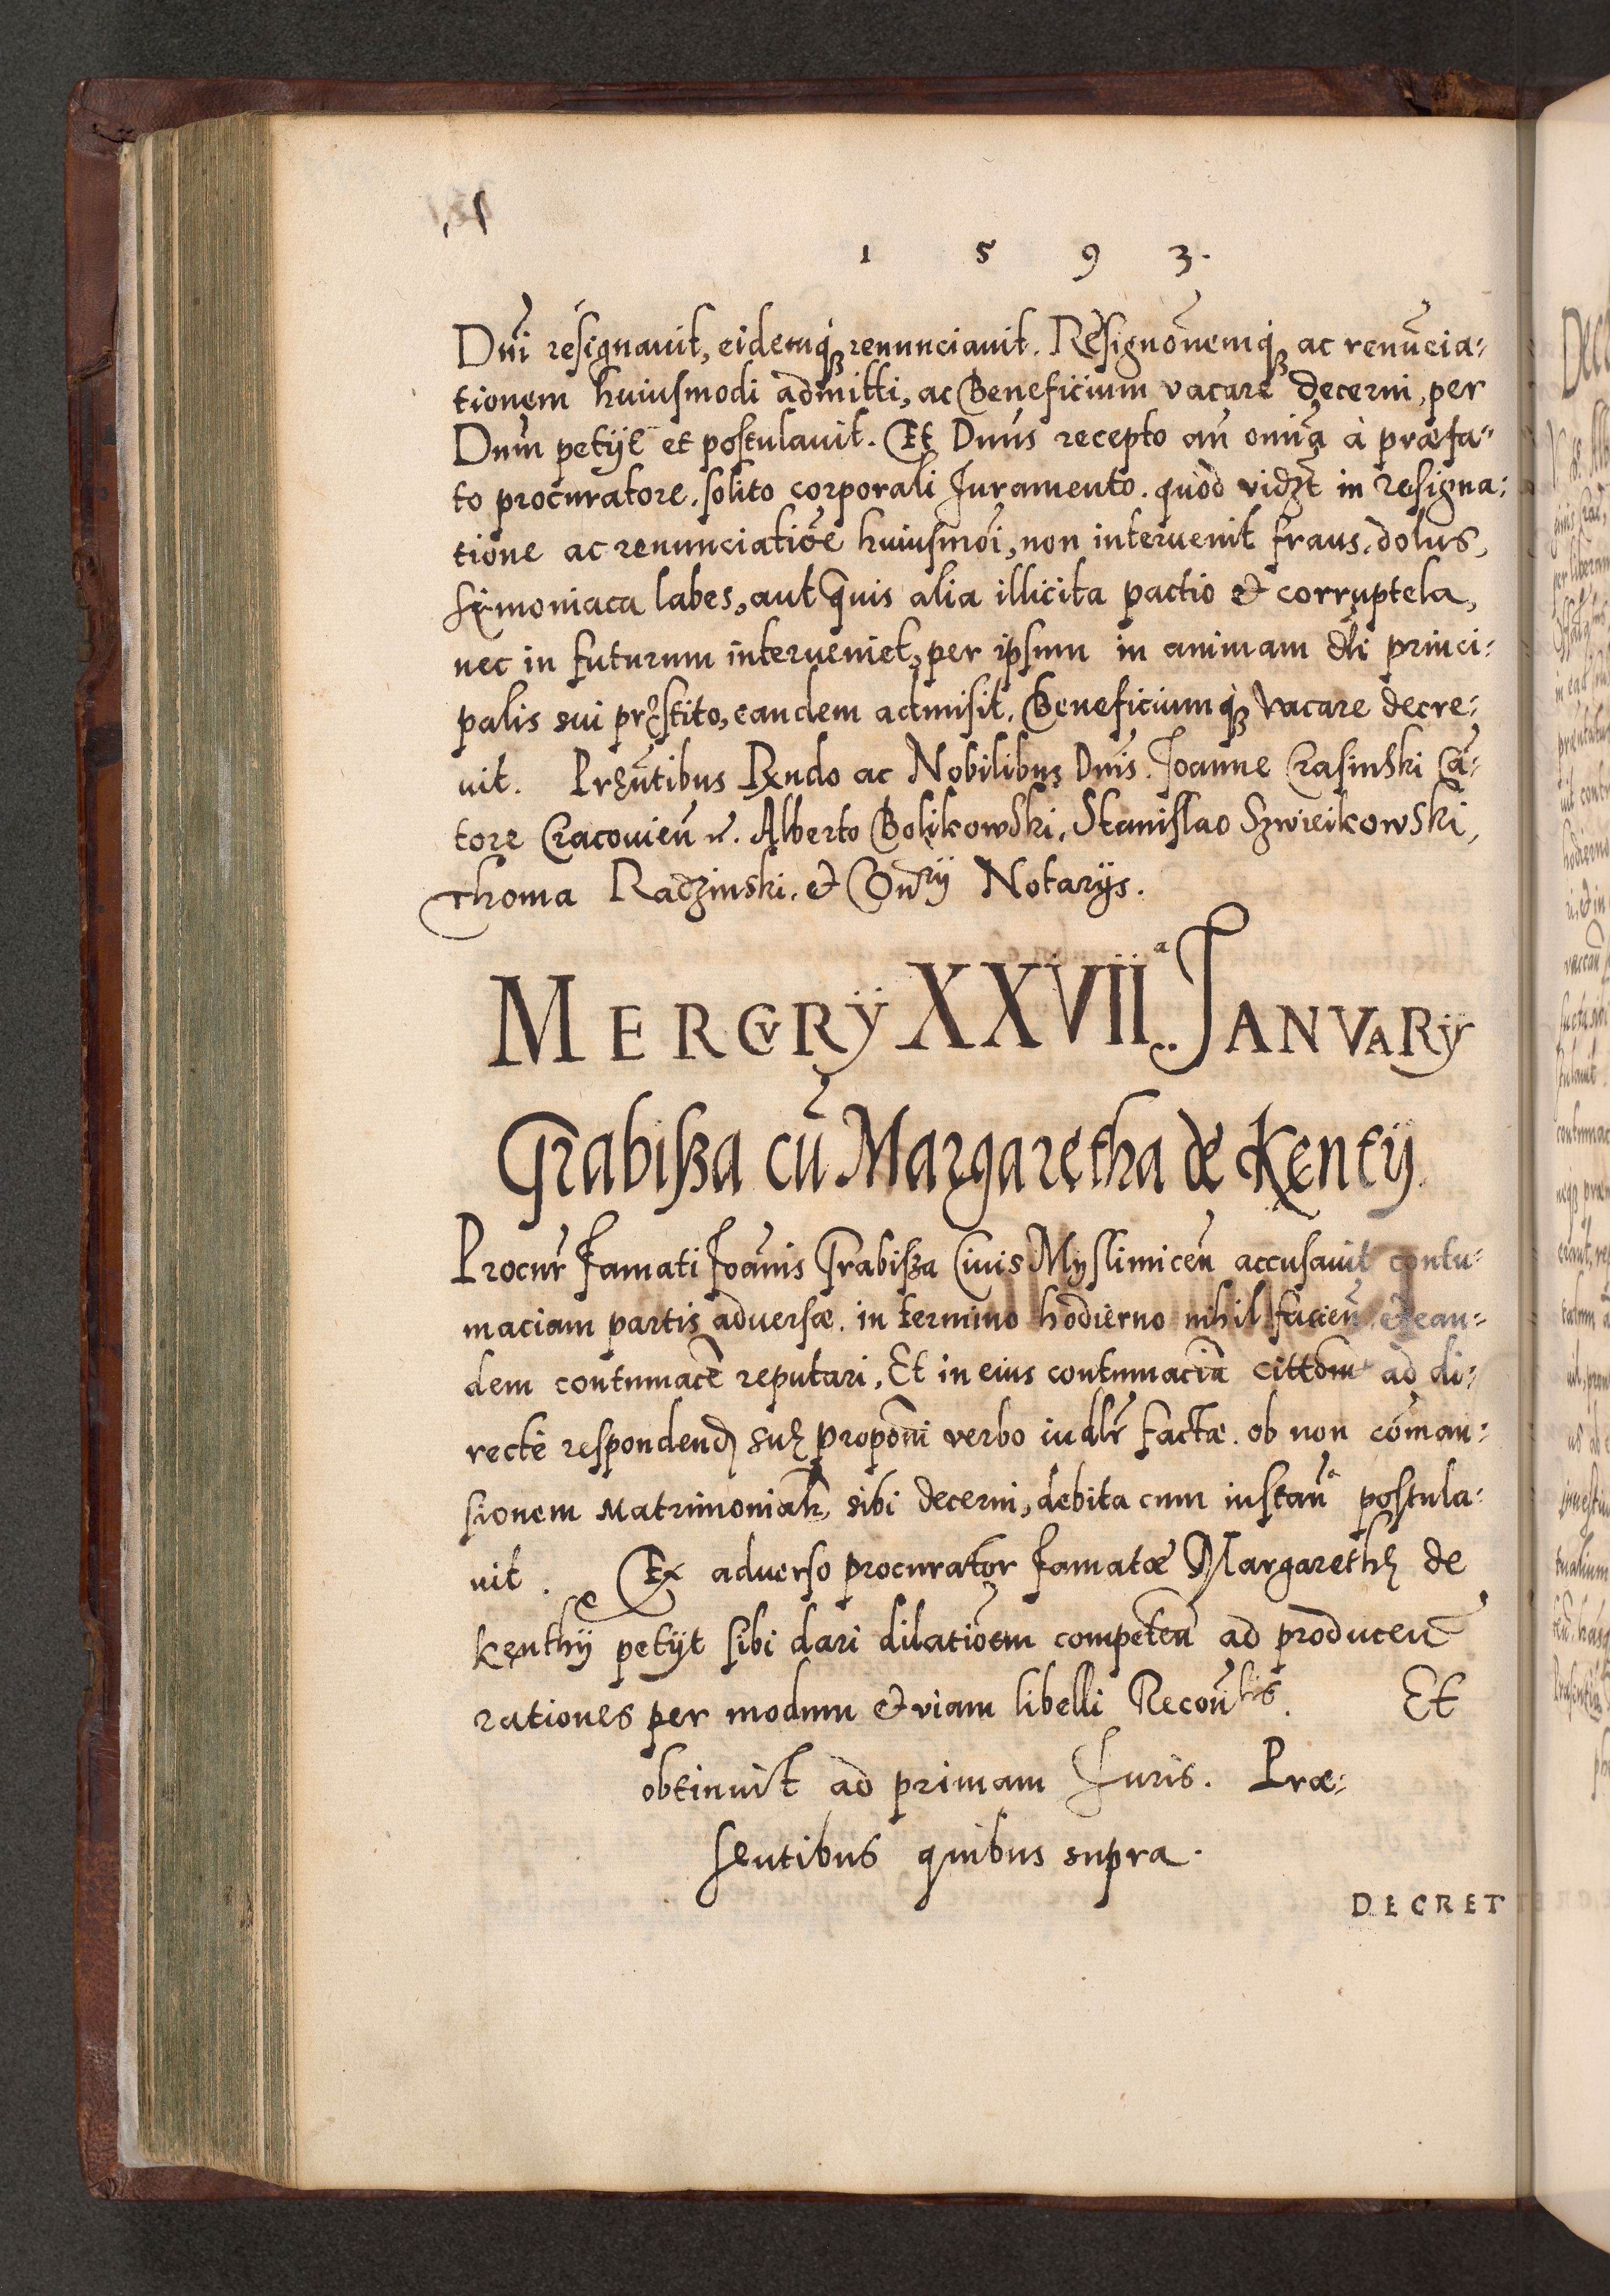 1 5 9 3.
Dni resignauit, eidemq́ꝫ renunciauit. Resignōnemq́ꝫ ac renūcia=
tionem huiusmodi admitti, ac Beneficium vacare decerni, per
Dnm petÿt et postulauit. Et Dnus recepto an omīa à præfa=
to procuratore, solito corporali Juramento. quòd vidꝫt in resigna=
tione ac renunciatiōe huiusmōi, non interuenit fraus, dolus,
simoniaca labes, aut quis alia illicita pactio & corruptela,
nec in futurum interueniet, per ipsum in animam dti princi=
palis sui pręstito, eandem admisit, Beneficiumq́ꝫ vacare decre=
uit. Pręntibus Rndo ac Nobilibus Dnis. Joanne Crasinski Cā=
tore Cracouien̄ Alberto Bolikowski, Stanislao Szwieikowski,
Thoma Radzinski, & Notarÿs.
MERCVRŸ XXVIIª JANVARŸ
Grabißa cū Margaretha de Kentÿ
Procur̄ Famati Joānis Grabißa Ciuis Myslimicen̄ accusauit contu=
maciam partis aduersæ. in termino hodierno nihil facien̄ & ean=
dem contumacē reputari, Et in eius contumaciā citt̄om ad di=
rectè respondend̄ suę propōni verbo iudlr̄ factæ. ob non cōman=
sionem Matrimonialē, sibi decerni, debita cum instanª postula=
uit. Ex aduerso procurator Famatæ Margarethę de
Kenthÿ petÿt sibi dari dilatiōem competen̄ ad producen̄
rationes per modum & viam libelli Recon̄lis. Et
obtinuit ad primam Juris. Præ=
sentibus quibus supra.
DECRET